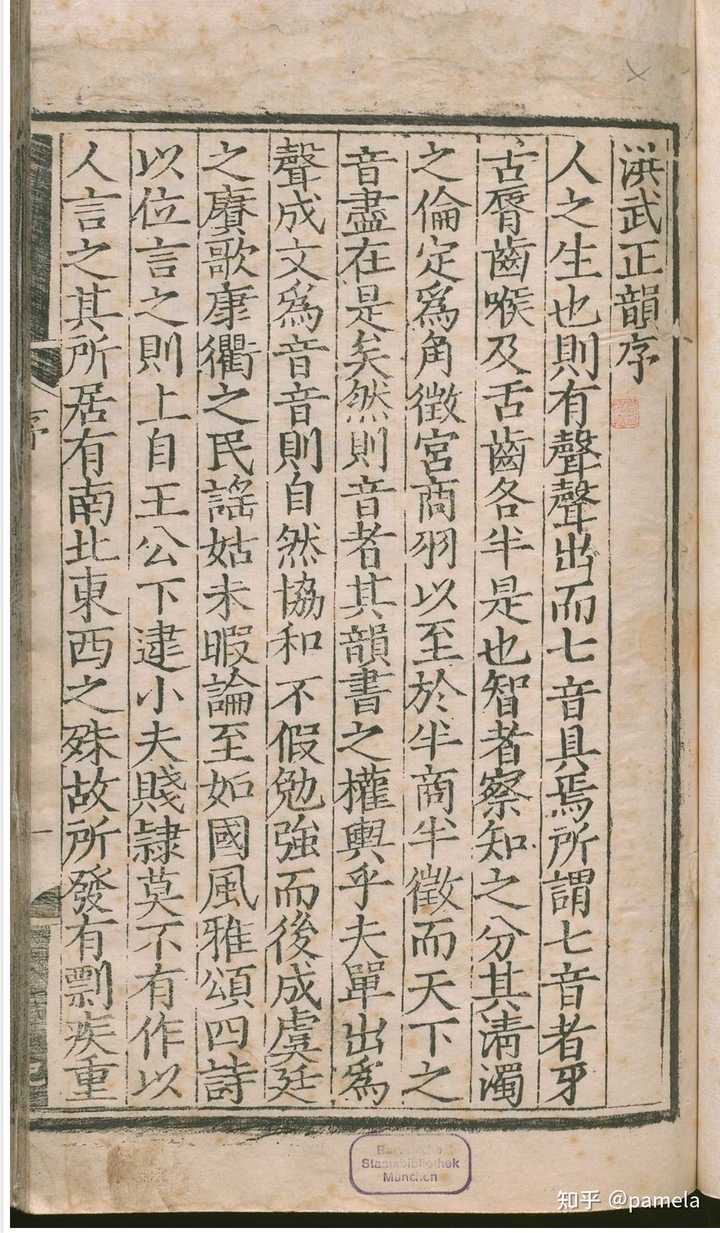 洪武正韻序
人之生也則有聲聲出而七音具焉所謂七音者牙
舌脣齒喉及舌齒各半是也智者察知之分其清濁
之倫定爲角徵宮商羽以至於半商半徵而天下之
音盡在是矣然則音者其韻書之權輿乎夫單出爲
聲成文爲音音則自然協和不假勉強而後成虞廷
之賡歌康衢之民謠姑未暇論至如國風雅頌四詩
以位言之則上自王公下逮小夫賤隷莫不有作以
人言之其所居有南北東西之殊故所發有剽疾重
序
一
Bayerische
Staatsbibliothek
München
知乎 @pamela